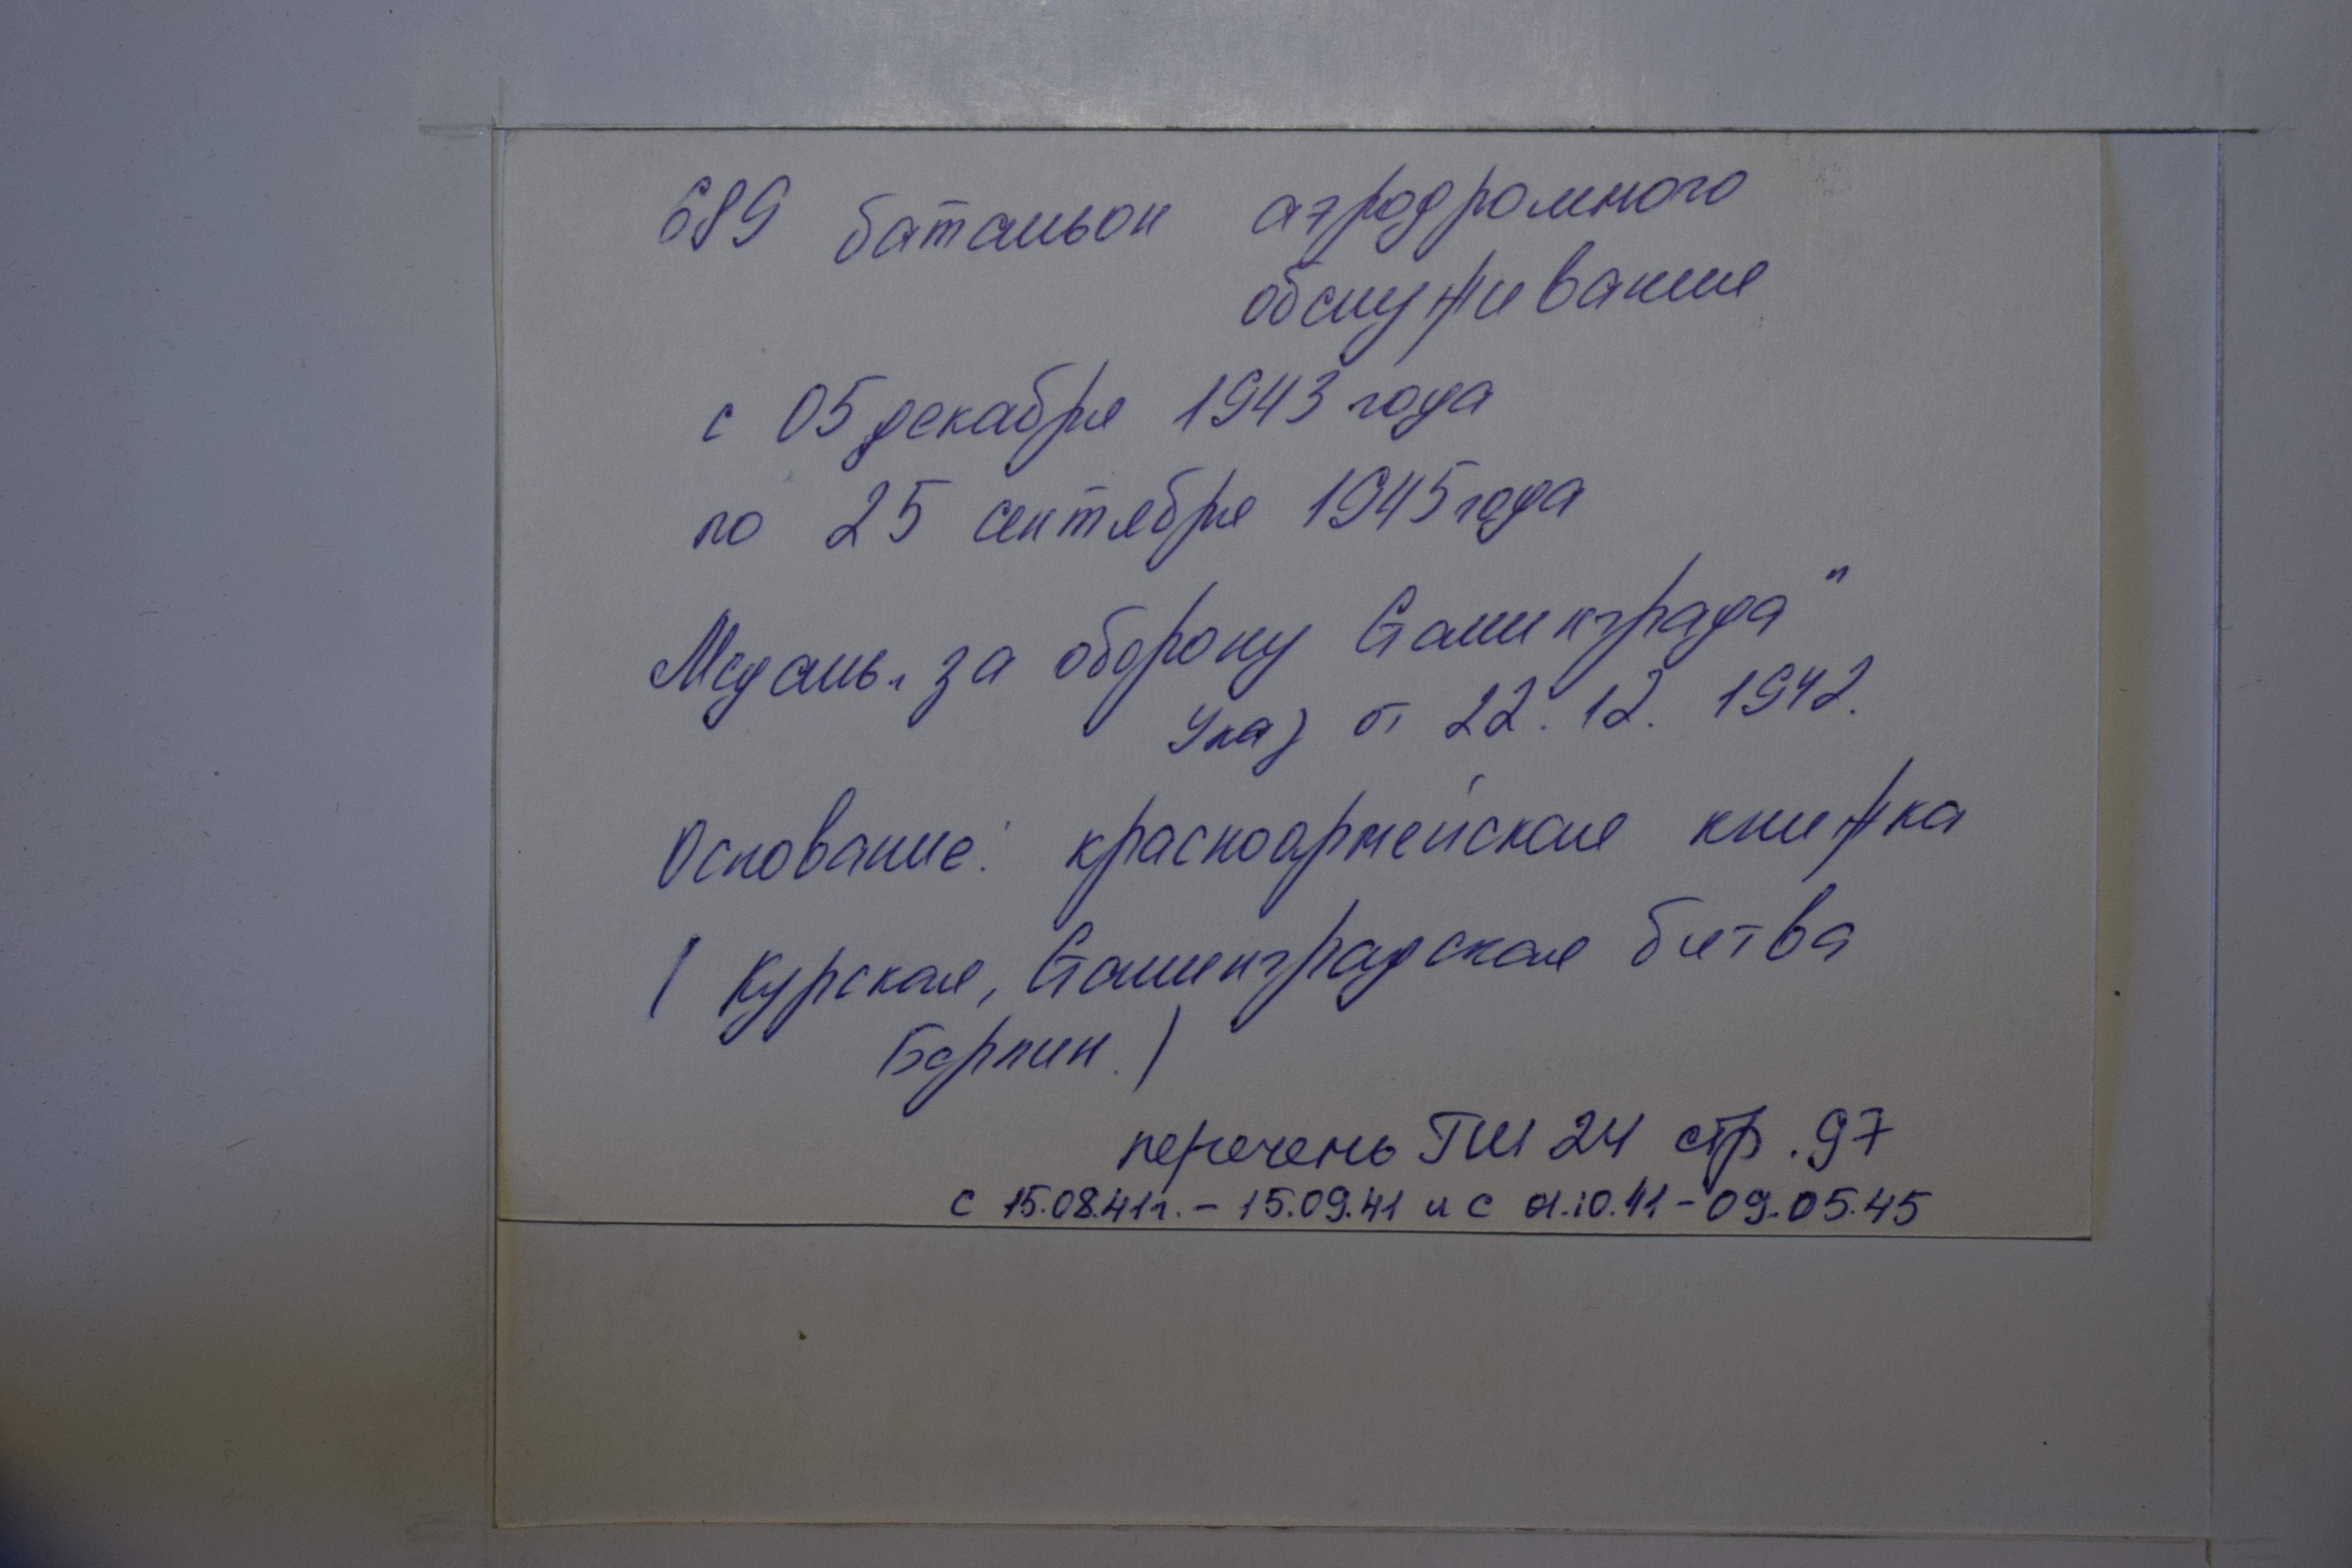 689 батальон аэродромного
обслуживания
с 05 декабря 1943 года
по 25 сентября 1945 года
Медаль „за оборону Сталинграда"
Указ от 22.12.1942.
Основание: красноармейская книжка
( Курская, Сталинградская битва
Берлин.)
перечень ГШ 24 стр. 97
с 15.08.41г. - 15.09.41 и с 01.10.41 - 09.05.45